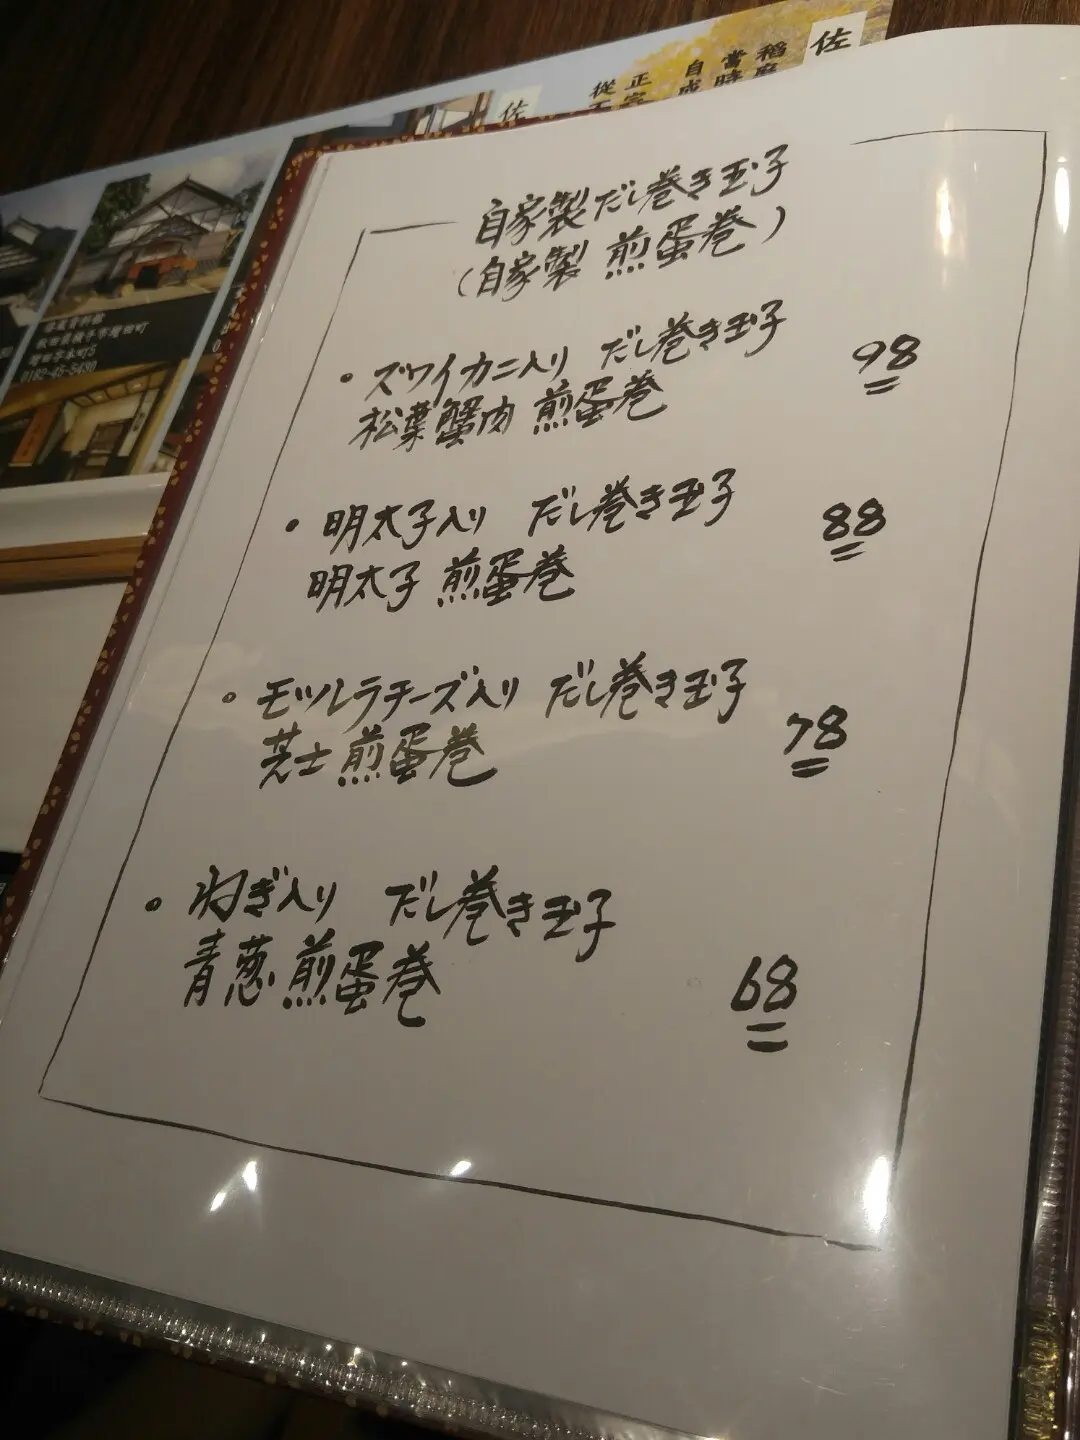 佐
自家製だし巻き玉子
(自家製 煎蛋巻)
・ズワイカニ入り だし巻き玉子 98
松葉蟹肉 煎蛋巻
・明太子入り だし巻き玉子 88
明太子 煎蛋巻
・モツルラチーズ入り だし巻き玉子 78
芝士煎蛋巻
・ねぎ入り だし巻き玉子 68
青葱煎蛋巻
秋田県横手市増田町
0182-45-5430